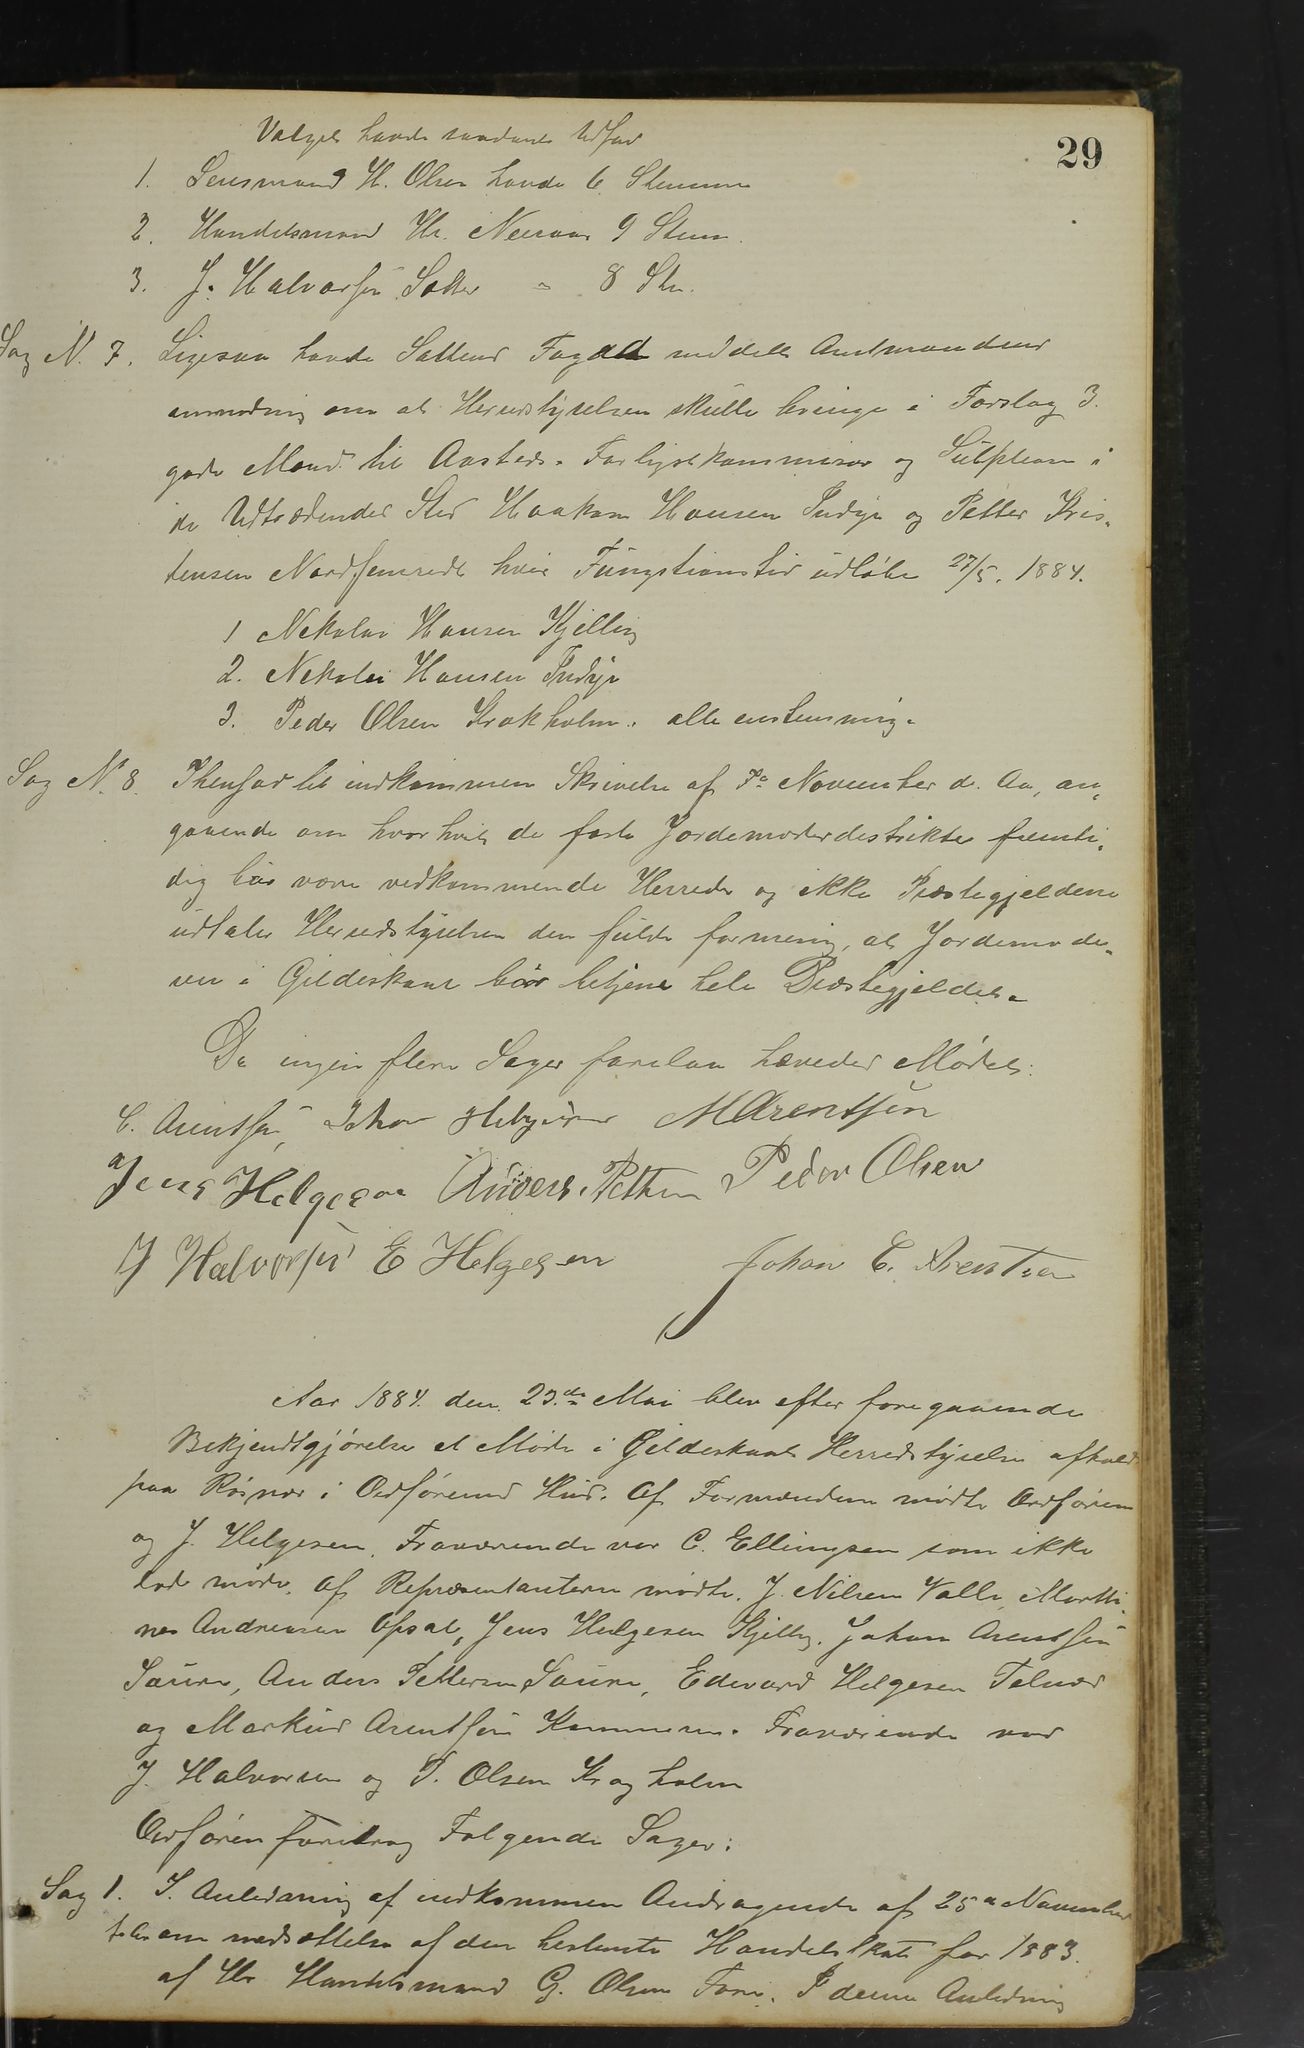 29
Valget havde saadant Udfad
1. Lensmand H. Olsen havde 6 Stemmer
2. Handelsmand Hr. Neeraas 9 Stem.
3. J. Halvorsen Sæter " 8 Ste.
Sag N. 7. Ligesaa havde Saltens Fogad meddelt Amtmandens
anmodning om at Herredstyrelsen skulle bringe i Forslag 3.
gode Mænd til Aasteds-Forligelskommisær og Suppleant i
de Udtrædendes Sted Haakon Hansen Indyr og Petter Kris-
tensen Nordfjerede hvis Fungstionstid udløber 27/5. 1884.
1 Nekolai Hansen Kjelling
2. Nekolai Hansen Indyr
3. Peder Olsen Krokholm. alle enstemmig.
Sag N. 8. Ihenhod til indkommen Skrivelse af November d. Aa, an-
gaaende om hvorhvit de faste Jordemoderdestrikter fremti-
dig bør være vedkommende Herreder og ikke Præstegjeldene
udtaler Herredstyrelsen den fulde formening, at Jordemode-
ren i Gildeskaal bør betjene hele Præstegjeldet.
Da ingen flere Sager forelaa hævedes Mødet.
C. Arentsen, Johan M Arentsen
Jens Helgesen Anders Pettersen Peder Olsen
J Halvorsen E Helgesen Johan C. Arentsen
Aar 1884. den 23.de Mai blev efter foregaaende
Bekjendtgjørelse et Møde i Gildeskaals Herredstyrelse afholdt
paa Røsnes i Ordførerens Hus. Af Formændene mødte Ordføreren
og J. Helgesen. Fraværende var C. Ellingsen som ikke
lod møde. Af Repræsentanterne mødte. J. Nilsen Valle, Martti-
nes Andreasen Opsal, Jens Helgesen Kjelling. Johan Arentsen
Saura, Anders Pettersen Saura, Edevard Helgesen Telnes
og Markus Arentsen Fraværende var
J. Halvorsen og P. Olsen Kragholm
Ordføren foredrog Følgende Sager:
Sag 1. I. Anledning af indkommen Andragende af 25de November
f. Aa om nedsættelse af den bestemte Handelskat for 1883.
af Hr Handelsmand G. Olsen Fore. I denne Anledning